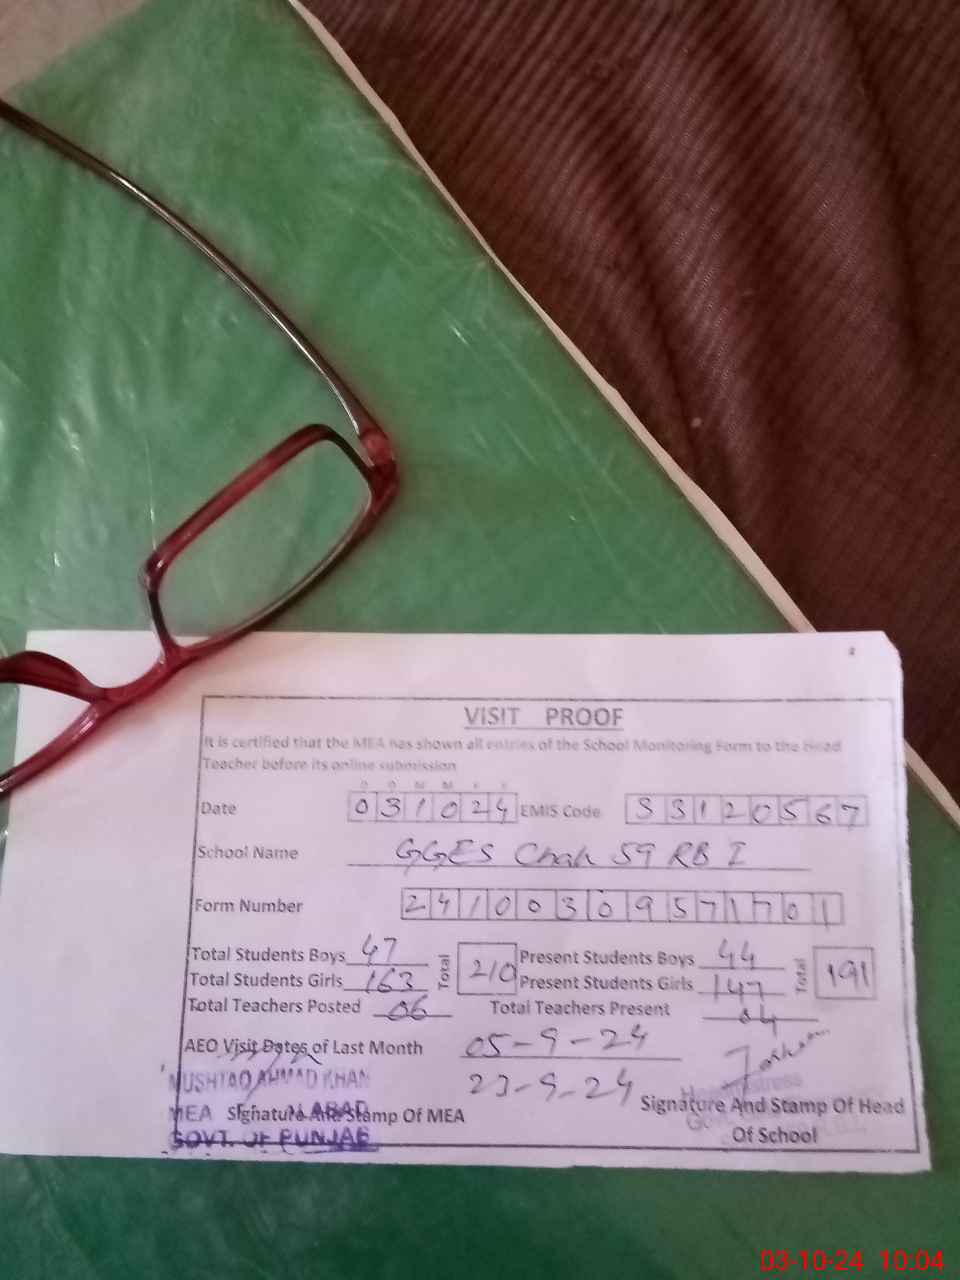 VISIT PROOF
It is certified that the MEA has shown all entries of the School Monitoring Form to the Head
Teacher before its online submission
D D M M Y Y
Date 031024 EMIS Code 33120567
School Name GGES Chak 59 RB I
Form Number 24100309571701
Total Students Boys 47 Total 210 Present Students Boys 44 Total 191
Total Students Girls 163 Present Students Girls 147
Total Teachers Posted 06 Total Teachers Present 04
AEO Visit Dates of Last Month 05-9-24
23-9-24
MUSHTAQ AHMAD KHAN
MEA
Signature And Stamp Of MEA
GOVT. OF PUNJAB
Headmistress
Signature And Stamp Of Head
Of School
03-10-24 10:04